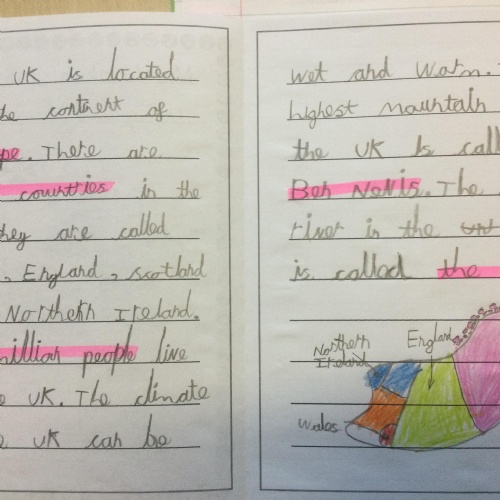 UK is located
the continent of
pe. There are
countries in the
they are called
, England, scotland
Northern Ireland.
million people live
e UK. The climate
e UK can be
wet and warm.
highest mountain
the UK Is call
Ben Nevis. The
river in the
is called the
Northern
Ireland
England
Wales